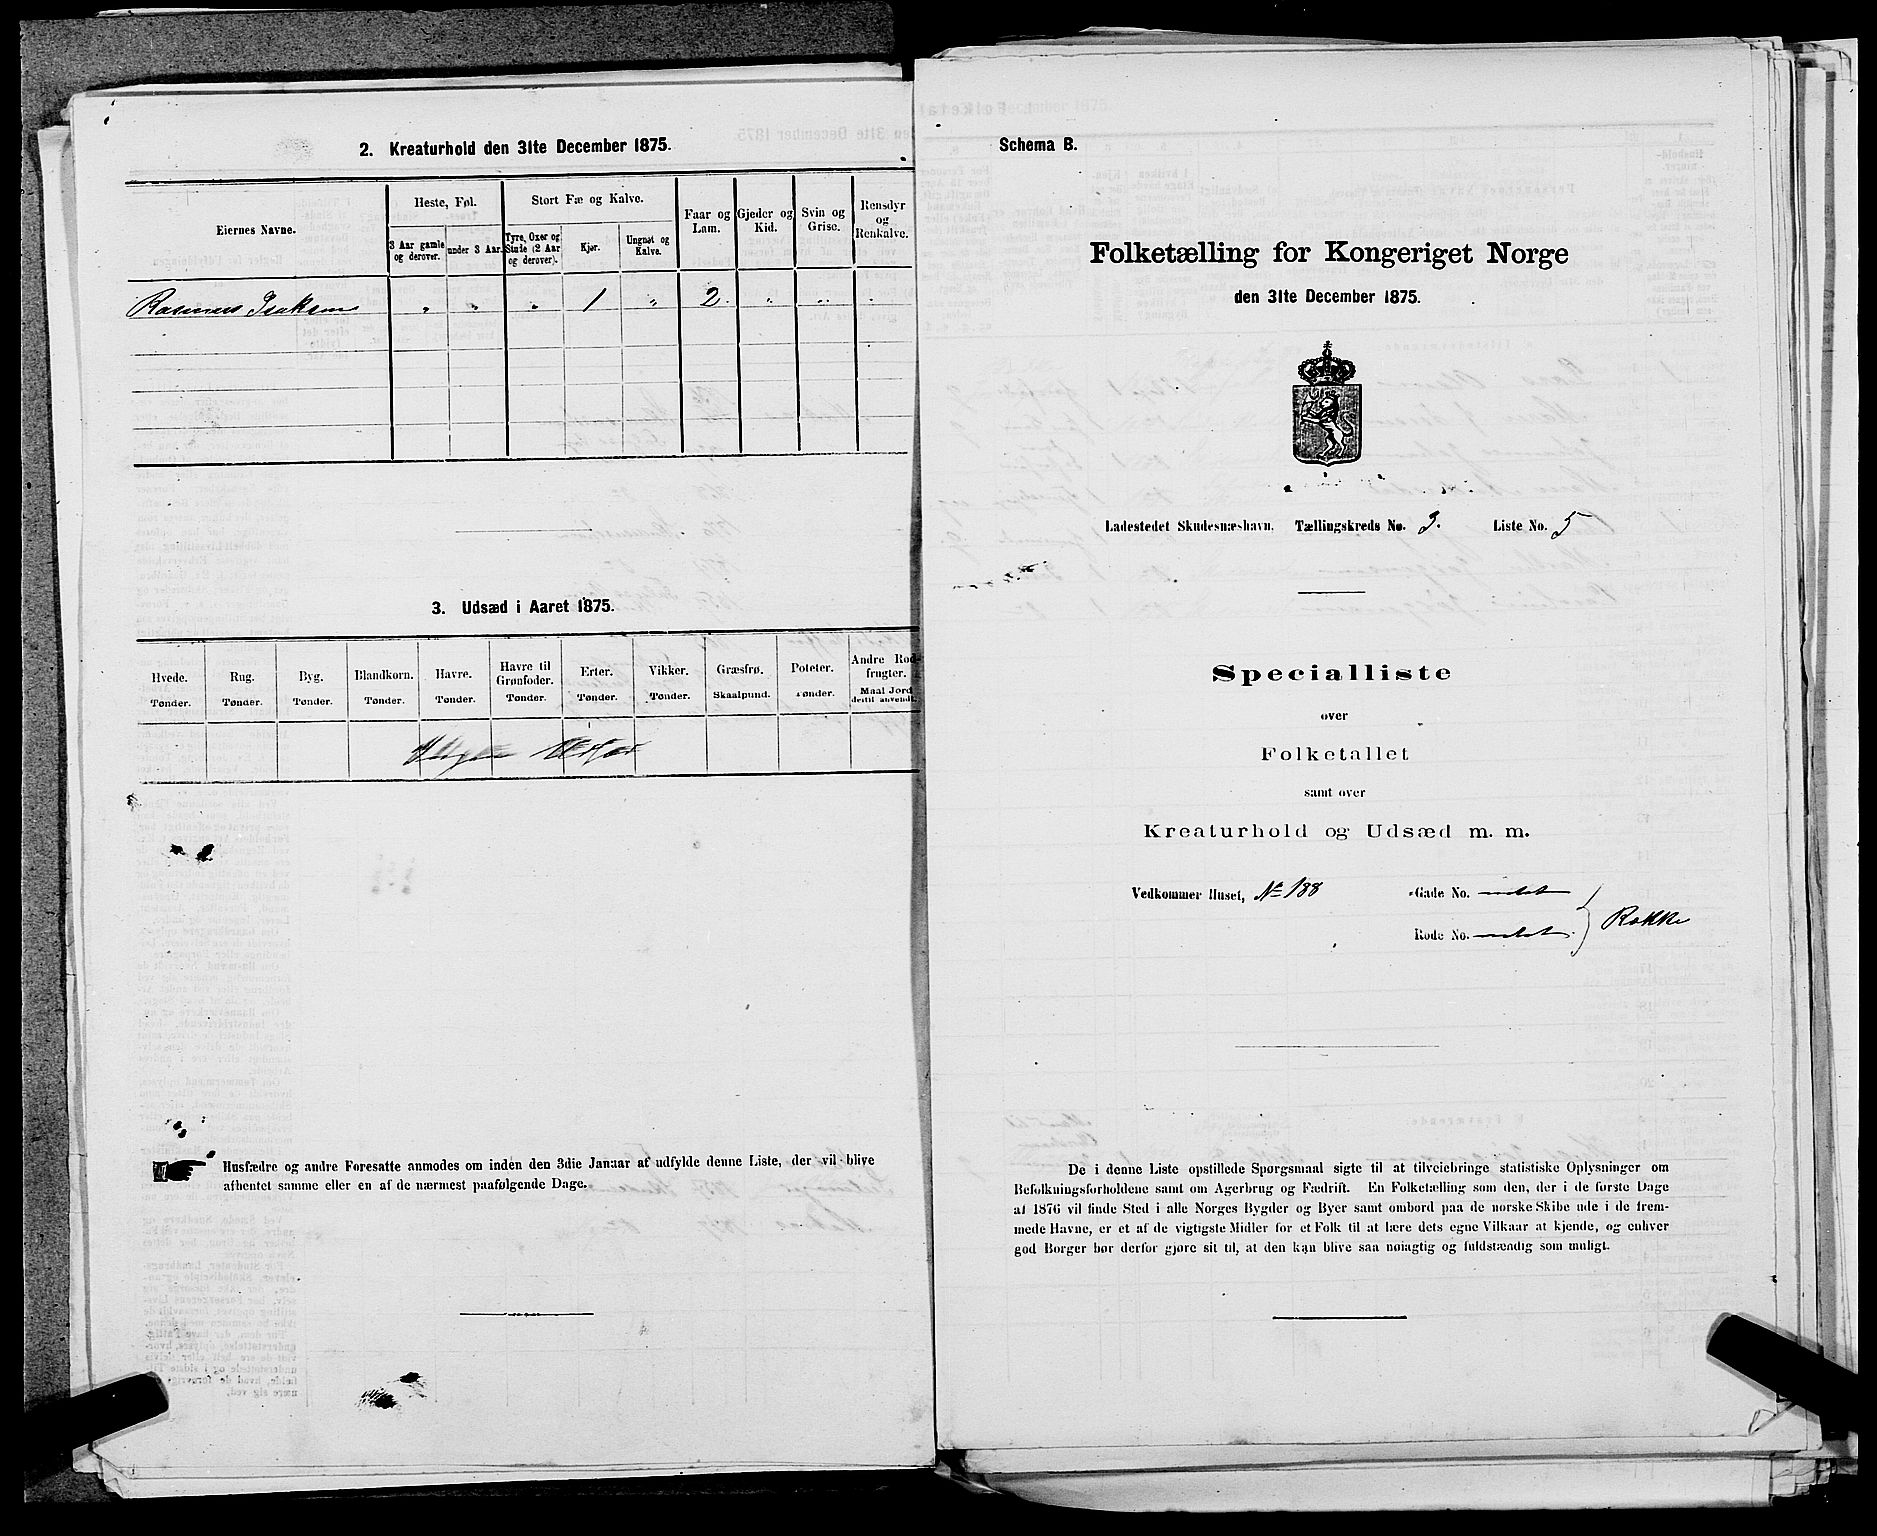 2. Kreaturhold den 31te December 1875.
Eiernes Navne.
Heste, Føl.
3 Aar gamle og derover.
under 3 Aar.
Stort Fæ og Kalve.
Tyre, Oxer og Stude (2 Aar og derover).
Kjør.
Ungnøt og Kalve.
Faar og Lam.
Gjeder og Kid.
Svin og Grise.
Rensdyr og Renkalve.
Rasmus Isaksen " " " 1 " 2 " " "
3. Udsæd i Aaret 1875.
Hvede. Rug. Byg. Blandkorn. Havre. Havre til Grønfoder. Erter. Vikker. Græsfrø. Poteter. Andre Rodfrugter.
Tønder. Tønder. Tønder. Tønder. Tønder. Tønder. Tønder. Tønder. Skaalpund. Tønder. Maal Jord dertil anvendt.
Husfædre og andre Foresatte anmodes om inden den 3die Januar at udfylde denne Liste, der vil blive
afhentet samme eller en af de nærmest paafølgende Dage.
Schema B.
Folketælling for Kongeriget Norge
den 31te December 1875.
Ladestedet Skudesnæshavn. Tællingskreds No. 3. Liste No. 5
Specialliste
over
Folketallet
samt over
Kreaturhold og Udsæd m. m.
Vedkommer Huset, No 188 Gade No. intet
Rode No. intet } Rokke
De i denne Liste opstillede Spørgsmaal sigte til at tilveiebringe statistiske Oplysninger om
Befolkningsforholdene samt om Agerbrug og Fædrift. En Folketælling som den, der i de første Dage
af 1876 vil finde Sted i alle Norges Bygder og Byer samt ombord paa de norske Skibe ude i de frem-
mede Havne, er et af de vigtigste Midler for et Folk til at lære dets egne Vilkaar at kjende, og enhver
god Borger bør derfor gjøre sit til, at den kan blive saa nøiagtig og fuldstændig som muligt.